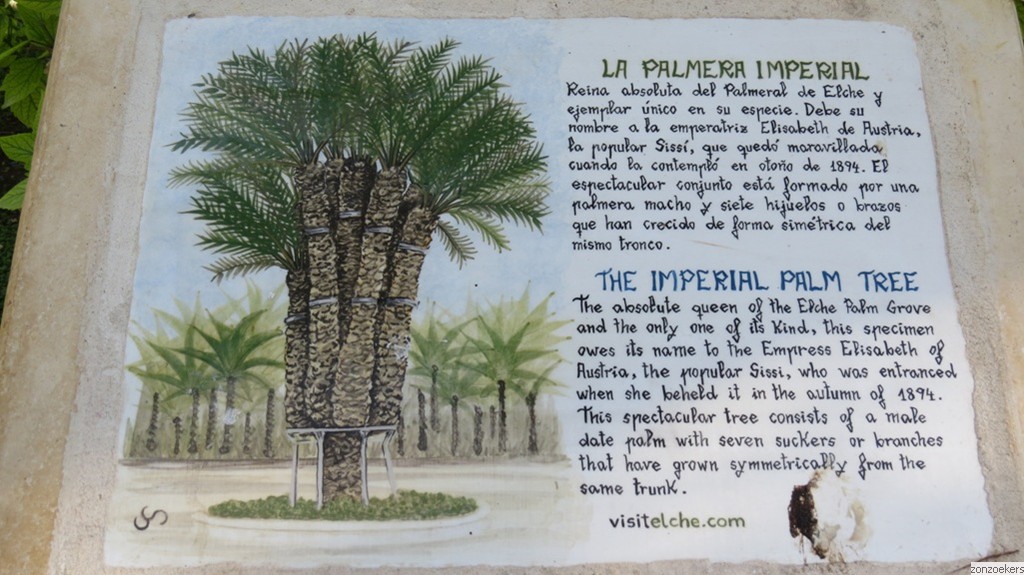 LA PALMERA IMPERIAL
Reina absoluta del Palmeral de Elche y
ejemplar único en su especie. Debe su
nombre a la emperatriz Elisabeth de Austria,
la popular Sissí, que quedó maravillada
cuando la contempló en otoño de 1894. El
espectacular conjunto está formado por una
palmera macho y siete hijuelos o brazos
que han crecido de forma simétrica del
mismo tronco.
THE IMPERIAL PALM TREE
The absolute queen of the Elche Palm Grove
and the only one of its kind, this specimen
owes its name to the Empress Elisabeth of
Austria, the popular Sissi, who was entranced
when she beheld it in the autumn of 1894.
This spectacular tree consists of a male
date palm with seven suckers or branches
that have grown symmetrically from the
same trunk.
visitelche.com
zonzoekers